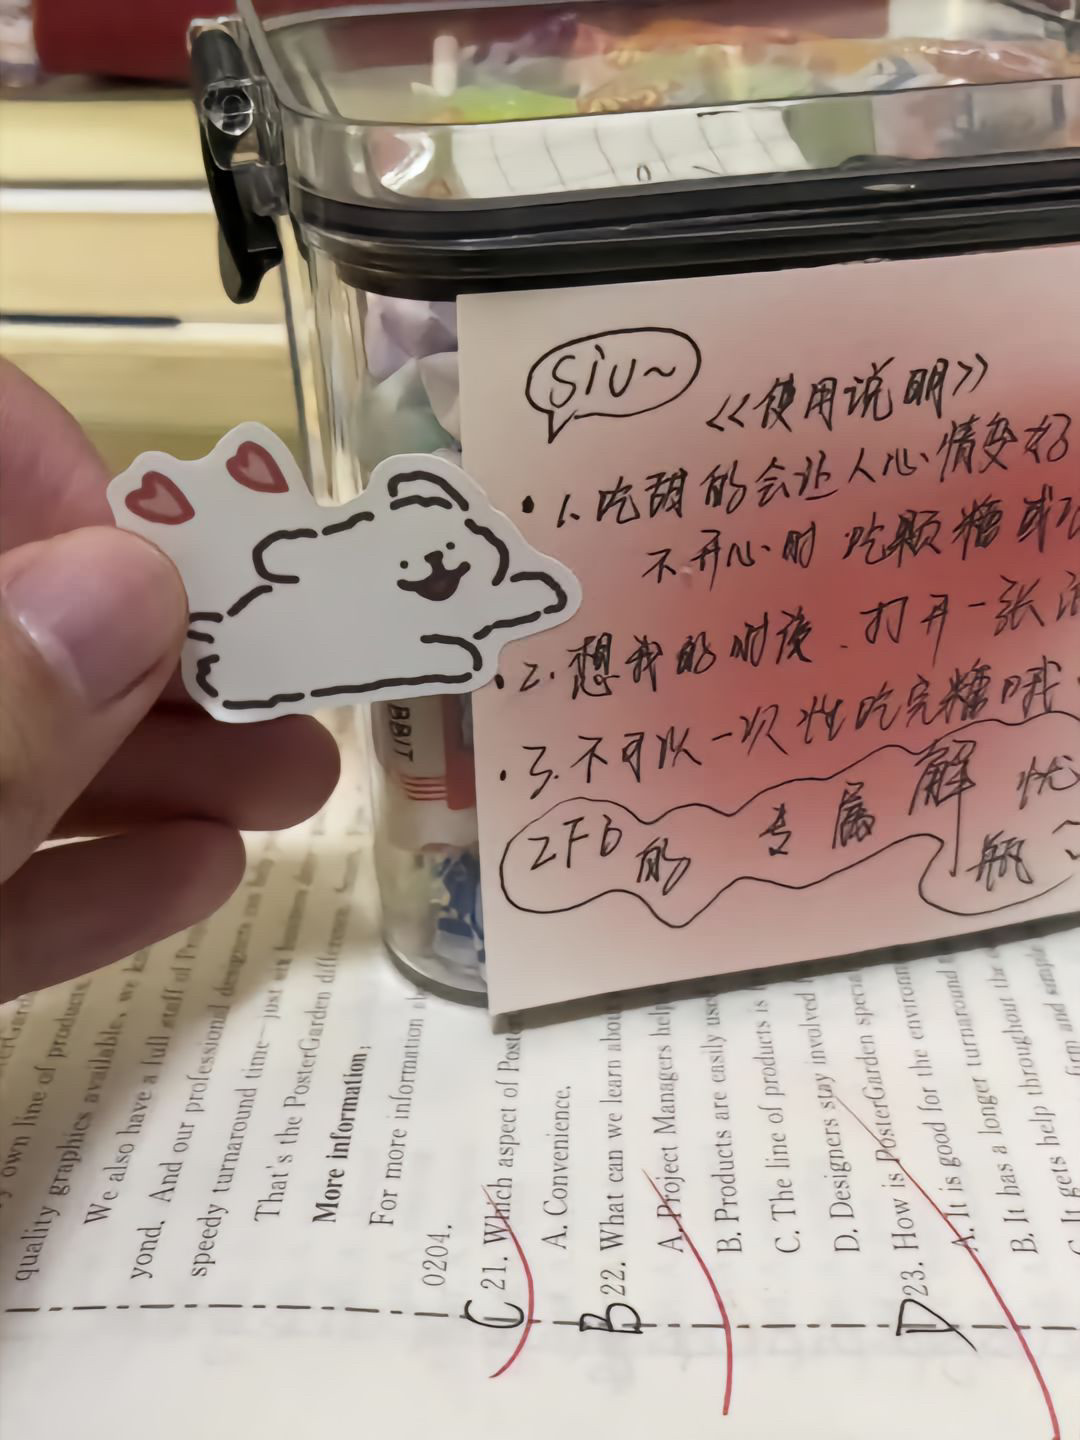 siu~
《使用说明》
1.吃甜的会让人心情变好
不开心时吃颗糖或
2.想我的时候.打开一张
3.不可以一次性吃完糖哦
ZFB的专属解忧瓶~
BBIT
y own line of products.
quality graphics available, we
We also have a full staff of
yond. And our professional designers can help
speedy turnaround time—just
That's the PosterGarden difference.
More information:
For more information
0204.
C 21. Which aspect of
A. Convenience.
B 22. What can we learn about
A. Project Managers help
B. Products are easily
C. The line of products is
D. Designers stay involved
D 23. How is PosterGarden
A. It is good for the
B. It has a longer turnaround
C. It gets help throughout the
firm and simple